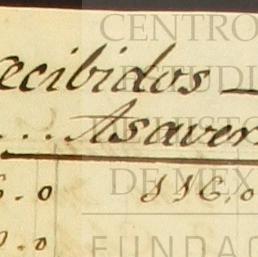 ecibidos —
.... Asaver
6.0 116.0
0.0
CENTRO
ESTUDI
DE HISTO
DE MEX
FUNDAC